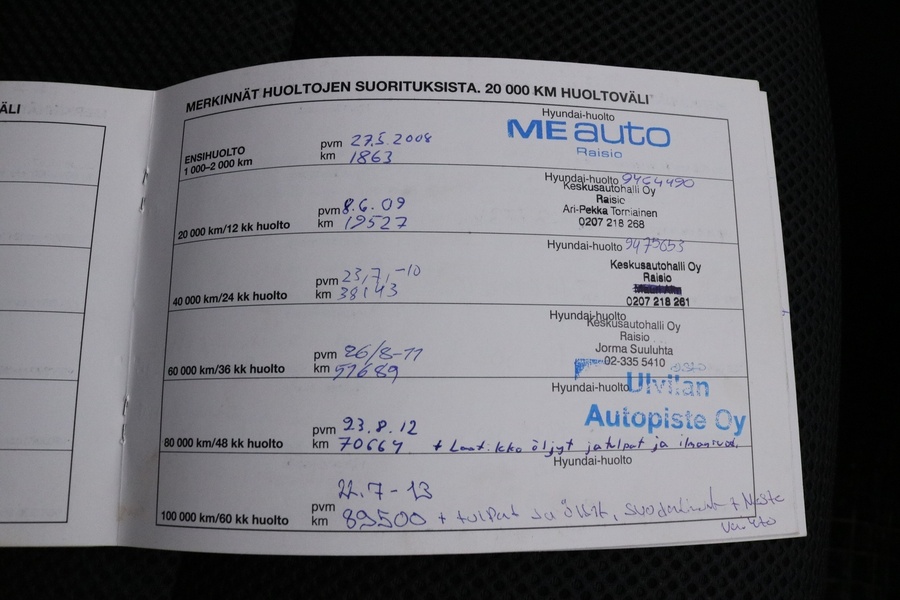 ÄLI
MERKINNÄT HUOLTOJEN SUORITUKSISTA. 20 000 KM HUOLTOVÄLI
Hyundai-huolto
ME auto
Raisio
ENSIHUOLTO
1 000–2 000 km
pvm 27.5.2008
km 1863
Hyundai-huolto 9464490
Keskusautohalli Oy
Raisio
Ari-Pekka Torniainen
0207 218 268
20 000 km/12 kk huolto
pvm 8.6.09
km 19527
Hyundai-huolto 9475653
Keskusautohalli Oy
Raisio
0207 218 261
40 000 km/24 kk huolto
pvm 23.7.-10
km 38143
Hyundai-huolto
Keskusautohalli Oy
Raisio
Jorma Suuluhta
02-335 5410
60 000 km/36 kk huolto
pvm 26/8-11
km 57689
Hyundai-huolto
Ulvilan
Autopiste Oy
80 000 km/48 kk huolto
pvm 23.8.12
km 70664 + öljyt ja tulpat ja
Hyundai-huolto
100 000 km/60 kk huolto
pvm 22.7-13
km 89500 + tulpat + Neste